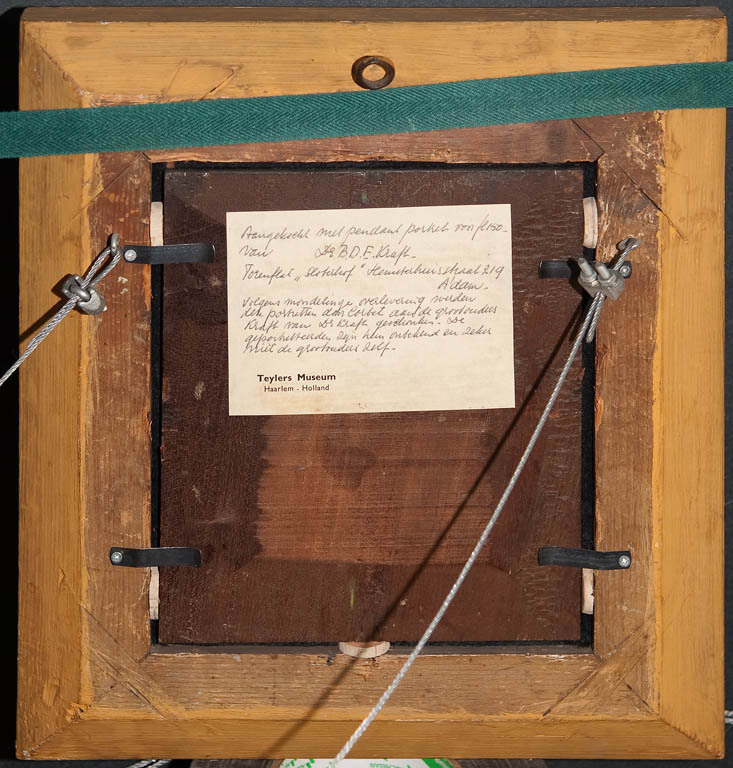 Aangekocht met pendant portret voor fl 150.-
van Dr B.D.E. Kraft.
Torenflat „Sloterhof" Heemsterhuisstraat 219
A'dam.
Volgens mondelinge overlevering werden
deze portretten door Corbet aan de grootouders
Kraft van Dr Kraft geschonken. De
geportretteerden zijn hem onbekend en zeker
niet de grootouders zelf.
Teylers Museum
Haarlem - Holland